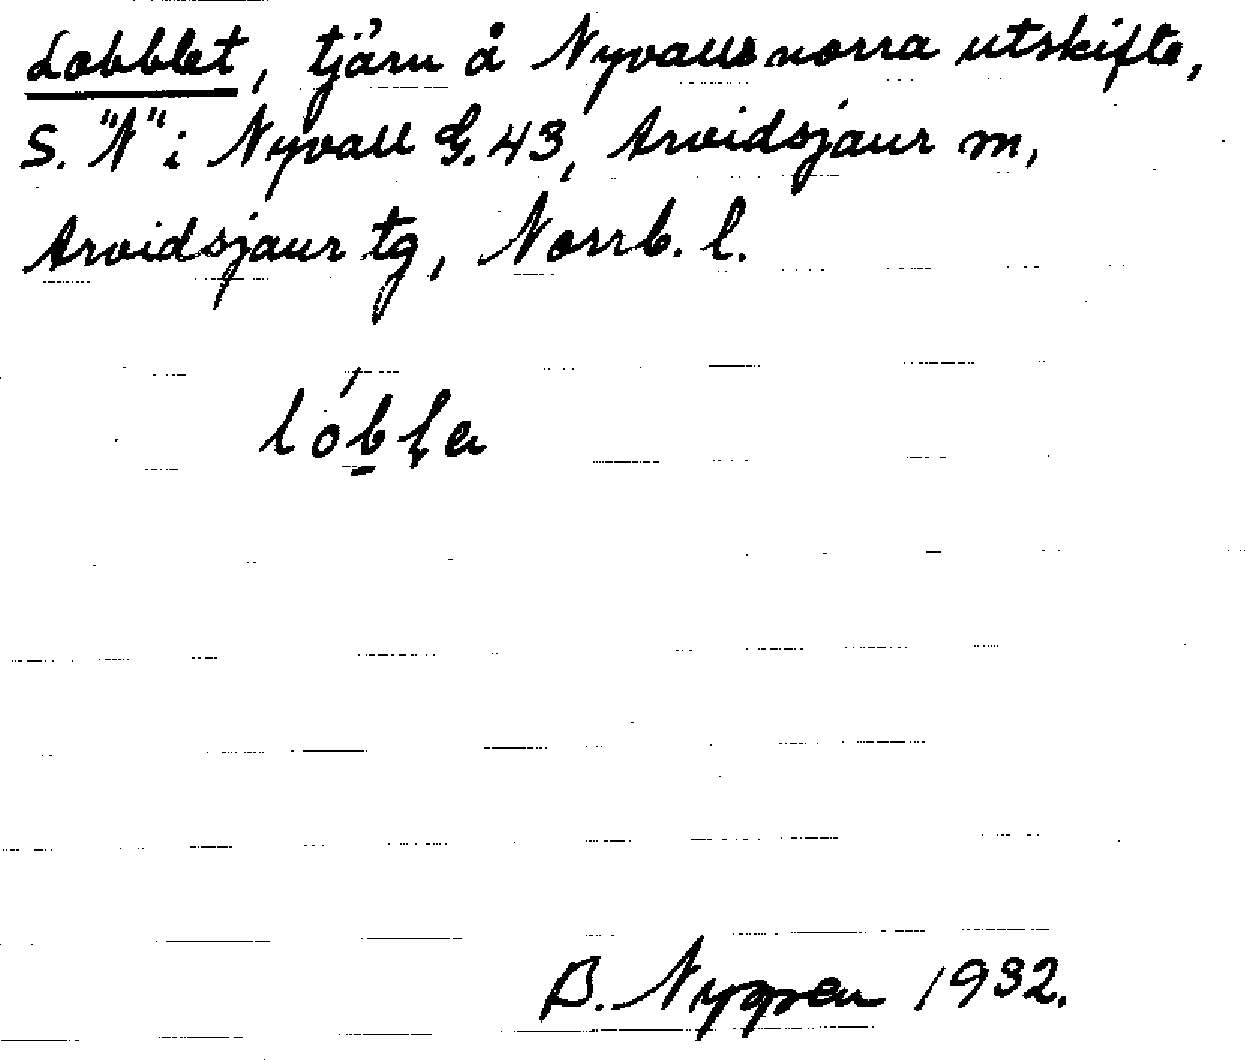 Lobblet, tjärn å Nyvalls norra utskifte,
S. "N" i Nyvall G. 43, Arvidsjaur m,
Arvidsjaur tg, Norrb. l.
B. 1932.